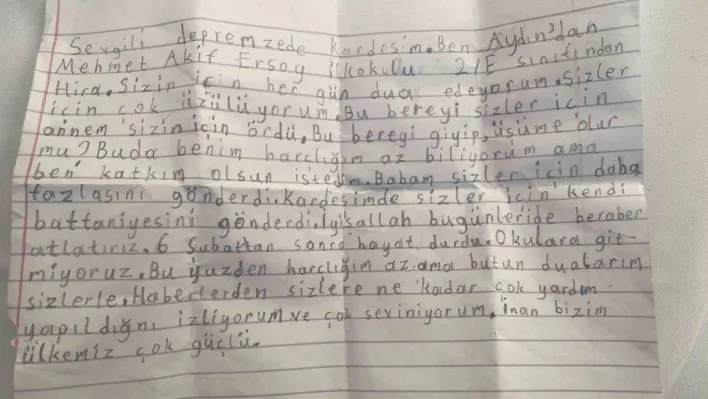 Sevgili depremzede kardeşim. Ben Aydın'dan
Mehmet Akif Ersoy ilkokulu 2/E sınıfından
Hira. Sizin için her gün dua edeyorum. Sizler
için çok üzülüyorum. Bu bereyi sizler için
annem sizin için ördü. Bu bereyi giyip, üşüme olur
mu? Buda benim harçlığım az biliyorum ama
ben katkım olsun istedim. Babam sizler için daha
fazlasını gönderdi. Kardeşimde sizler için kendi
battaniyesini gönderdi. İyişallah bugünleride beraber
atlatırız. 6 Şubattan sonra hayat durdu. Okulara git-
miyoruz. Bu yüzden harçlığım az. ama butun dualarım
sizlerle. Haberlerden sizlere ne kadar çok yardım
yapıldığnı izliyorum ve çok seviniyorum. İnan bizim
ülkemiz çok güçlü.